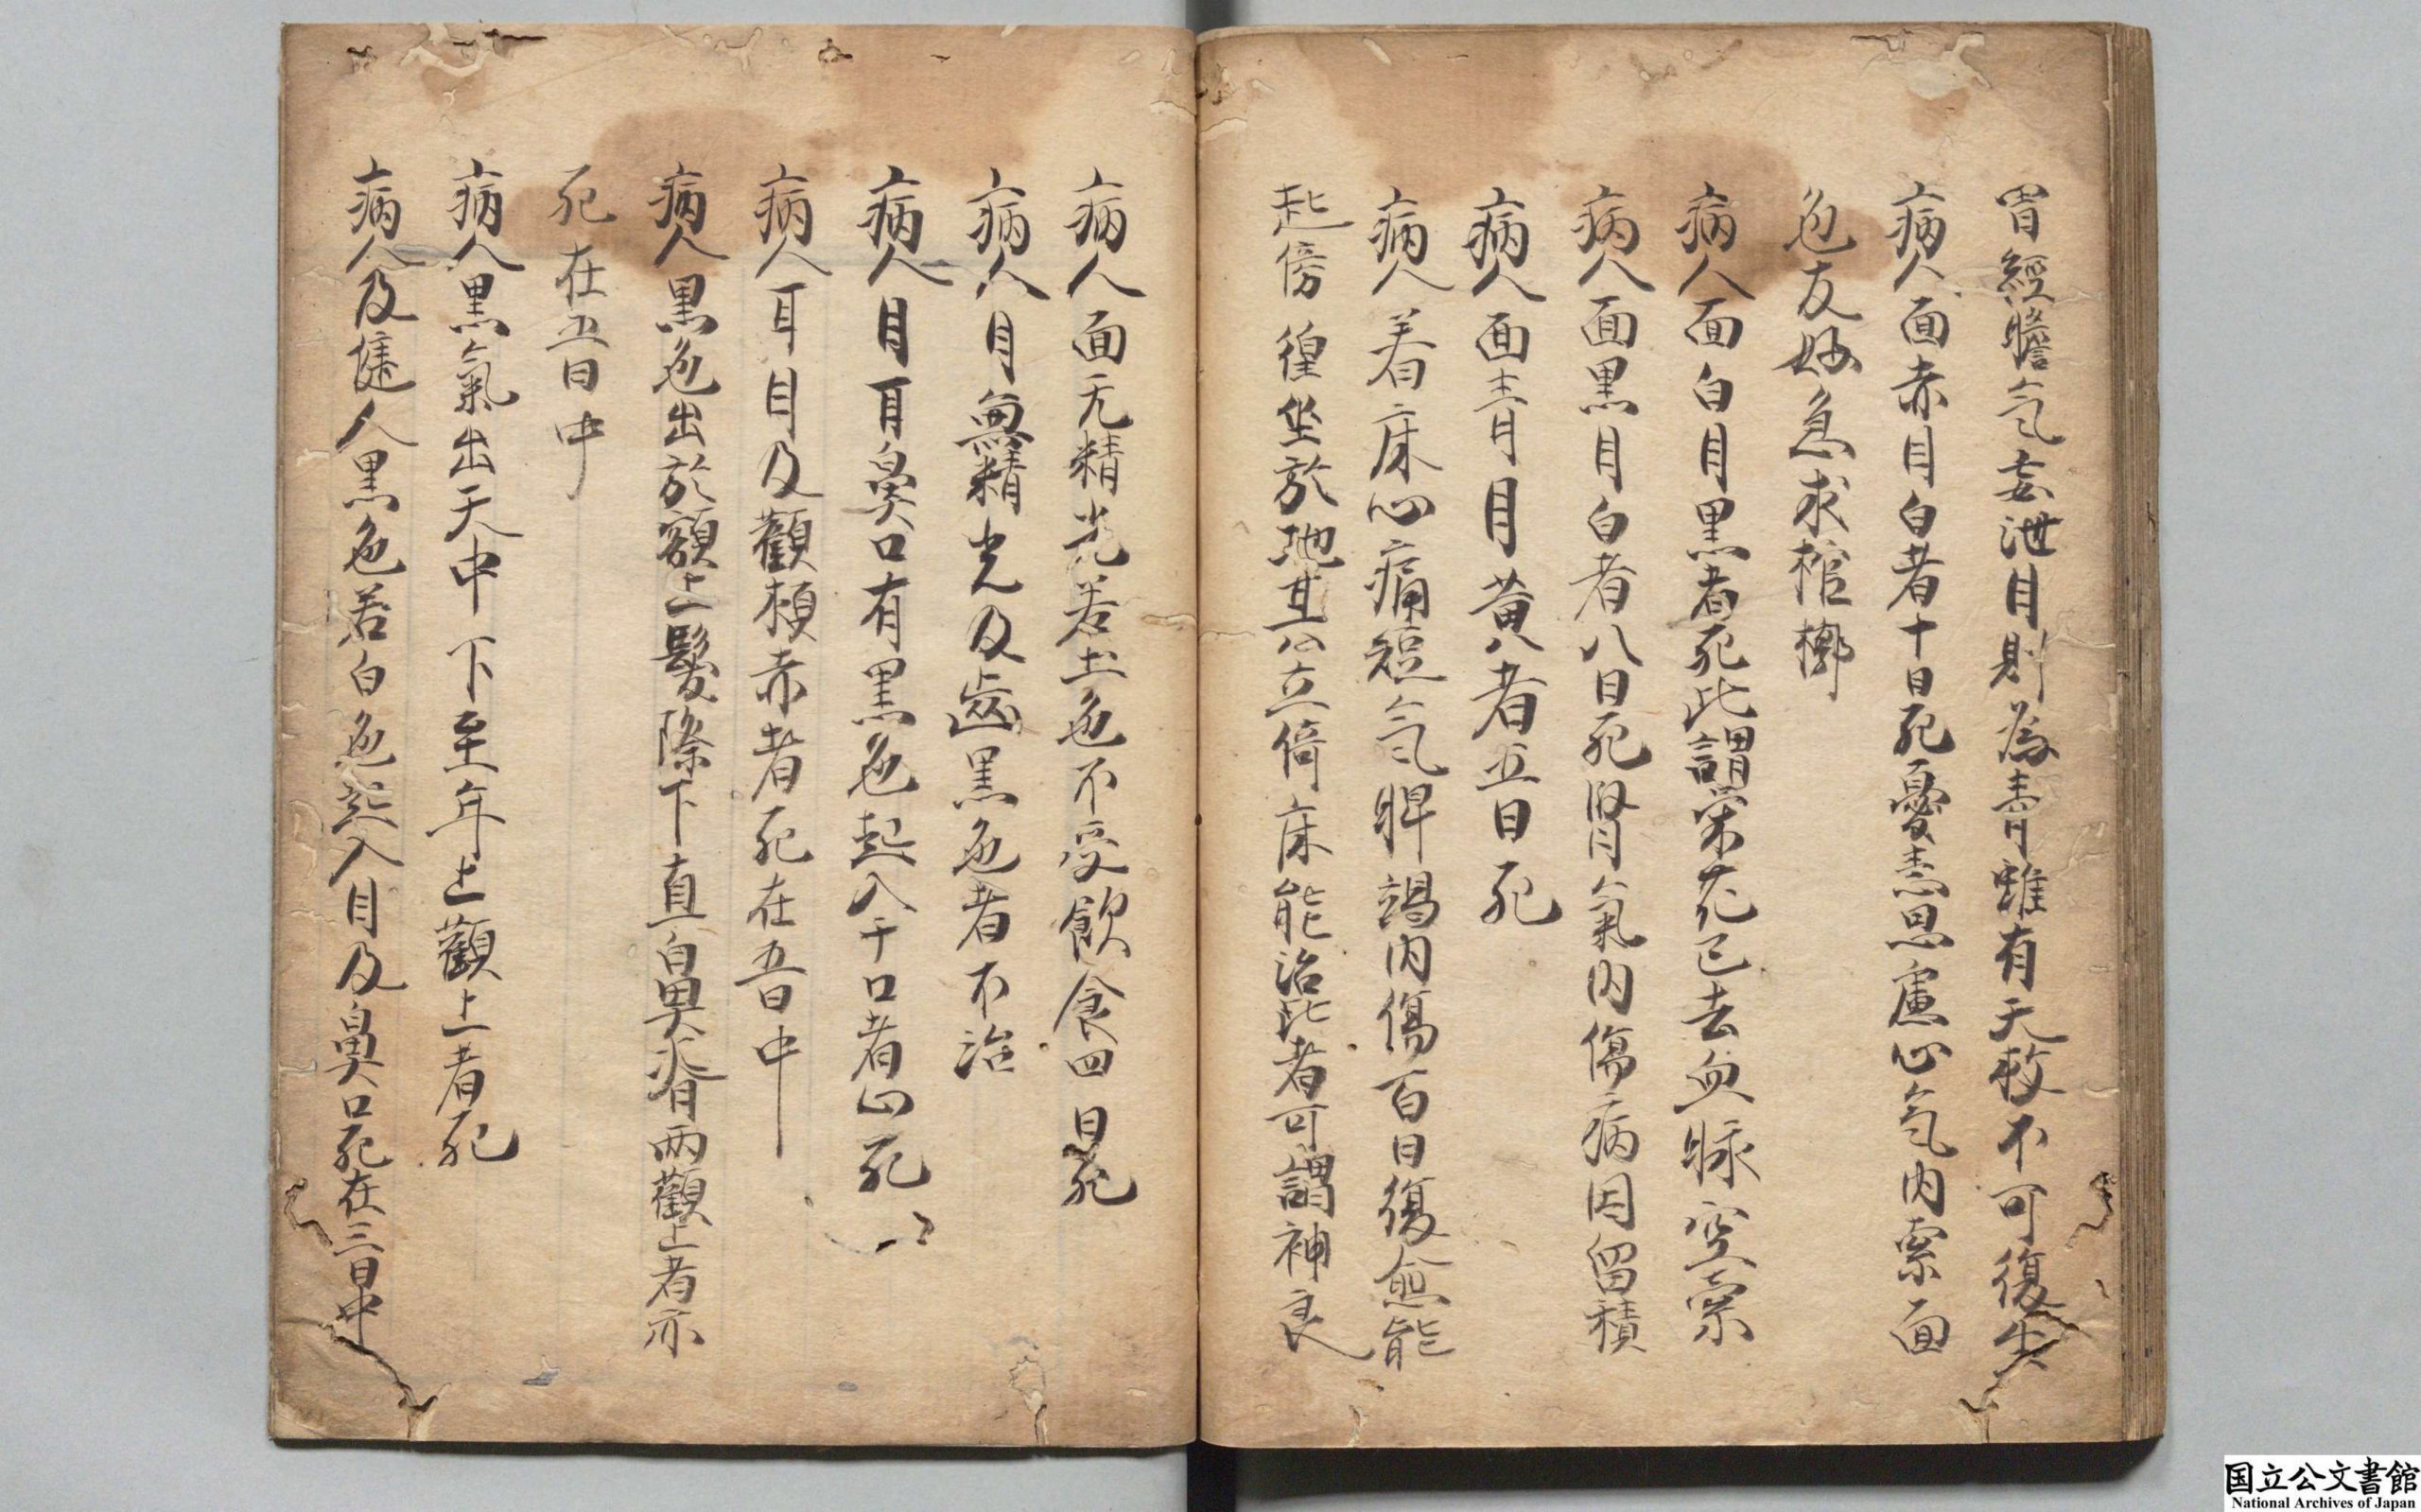 胃經膽气妄泄目則為青雖有天救不可復生
病人面赤目白者十日死憂恚思慮心气内索面
色友好急求棺槨
病人面白目黒者死此謂榮花已去血脉空索
病人面黒目白者八日死腎氣内傷病因留積
病人面青目黄者五日死
病人着床心痛短气脾竭内傷百日復愈能
起傍徨坐於地其公立倚床能治此者可謂神良
病人面无精光若土色不受飲食四日死
病人目無精光及齒黒色者不治
病人目耳鼻口有黒色起入于口者必死
病人耳目及顴頬赤者死在五日中
病人黒色出於額上髮際下直鼻脊兩顴上者亦
死在五日中
病人黒氣出天中下至年上顴上者死
病人及健人黒色若白色起入目及鼻口死在三日中
国立公文書館
National Archives of Japan